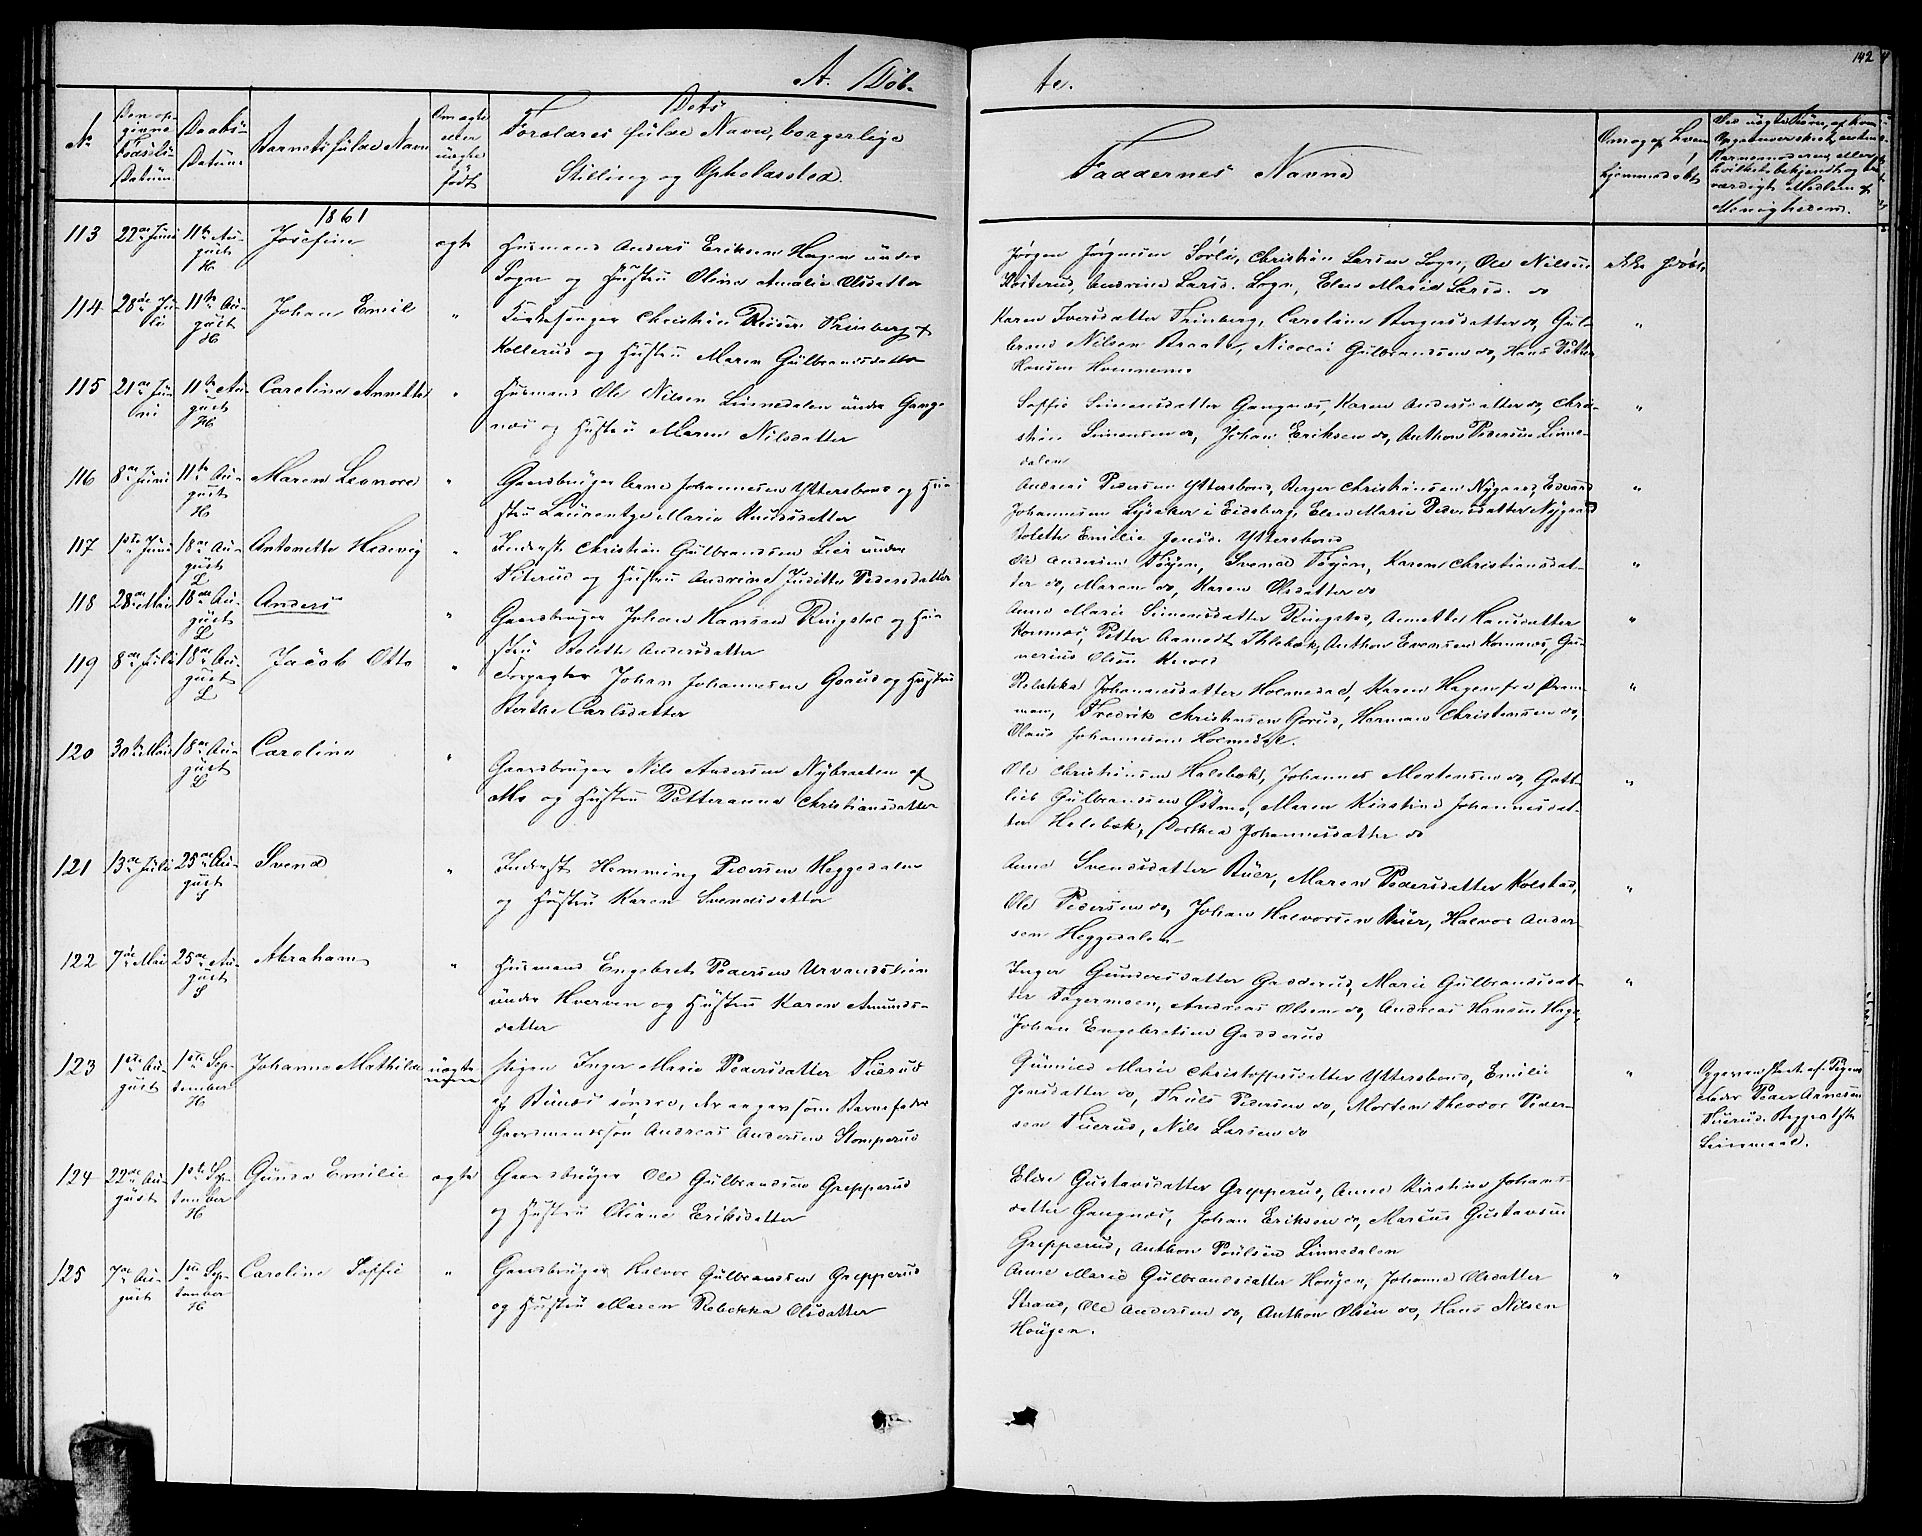 A. Døb-
te.
142
No
Den op-
givne
Fødsels-
Datum
Daabs-
Datum
Barnets fulde Navn
Om ægte
eller
uægte
født
Dets
Forældres fulde Navn, borgerlige
Stilling og Opholdssted.
Faddernes Navne
Om og af hvem
hjemmedøbt
Menigheden.
1861
113 22de Juni 11te Au-
gust
H
Josefine ægte Husmand Anders Eriksen Hagen under
Sogn og Hustru Oline Amalie Olsdatter
Jørgen Jørgensen Sørli, Christian Larsen Sogn, Ole Nilsen
Andrine Larsd. Sogn, Elen Marie Larsd. do
ikke hjdbt.
114 28de Ju-
li
11te Au-
gust
H
Johan Emil " Kirkesanger Christian Riiser Trinberg af
Kollerud og Hustru Maren Gulbrandsdatter
Karen Iversdatter Trinberg, Caroline Borgersdatter do, Gul-
brand Nilsen Braate, Nicolai Gulbrandsen do, Hans Petter
Hansen
"
115 21de Ju-
ni
11te Au-
gust
H
Caroline Annette " Husmand Ole Nilsen Linnedalen under Gang-
næs og Hustru Maren Nilsdatter
Soffie Simensdatter Gangnæs, Karen Andersdatter do, Chri-
stian Simensen do, Johan Eriksen do, Anthon Pedersen Linne-
dalen
"
116 8de Juni 11te Au-
gust
H
Maren Leonore " Gaardbruger Arne Johannesen Yttersbond og Hu-
stru Laurentze Marie Knudsdatter
Andreas Pedersen Yttersbond, Berger Christiansen Nygaard, Edvard
Johannesen Lysaker i Eidsberg, Elen Marie Pedersdatter Nygaard
Bolette Emilie Jensd. Yttersbond
"
117 1ste Juni 18de Au-
gust
L
Antonette Hedevig " Inderst Christian Gulbrandsen Lier under
Piterud og Hustru Andrine Juditte Pedersdatter
Ole Andersen Tøien, Svend Tøien, Karen Christiansdat-
ter do, Maren do, Karen Olsdatter do
"
118 28de Mai 18de Au-
gust
L
Anders " Gaardbruger Johan Hansen Ringstad og Hu-
stru Bolette Andersdatter
Anne Marie Simensdatter Ringstad, Annette Hansdatter
Kornæs, Petter Aamodt Thlebek, Anthon Evensen Kornæs, Gu-
nerius Olsen
"
119 8de Juli 18de Au-
gust
L
Jacob Otto " Forpagter Johan Johannesen Gorud og Hustru
Berthe Carlsdatter
Rebekka Johannesdatter Holmedal, Karen Hagen fra Dram-
men, Fredrik Christensen Gorud, Herman Christensen do,
Olaus Johannesen Holmedal.
"
120 30te Mai 18de Au-
gust
L
Caroline " Gaardbruger Nils Andersen Nybraaten af
Mo og Hustru Petteranna Christiansdatter
Ole Christiansen Halebæk, Johannes Mortensen do, Gott-
lieb Gulbrandsen Østmo, Maren Kirstine Johannesdat-
ter Halebæk, Dorthea Johannesdatter do
"
121 13de Juli 25de Au-
gust
S
Svend " Inderst Hemming Pedersen Heggedalen
og Hustru Karen Svendsdatter
Anne Svendsdatter Buer, Maren Pedersdatter Kolstad,
Ole Pedersen do, Johan Halvorsen Buer, Halvor Ander-
sen Heggedalen
"
122 7de Mai 25de Au-
gust
S
Abraham " Husmand Engebret Pedersen Urvandslien
under Hverven og Hustru Karen Amunds-
datter
Inger Gundersdatter Gadderud, Marie Gulbrandsdat-
ter Fagermoen, Andreas Olsen do, Andreas Hansen Hage,
Johan Engebretsen Gadderud
"
123 1ste Au-
gust
1ste Sep-
tember
H
Johanne Mathilde uægte Pigen Inger Marie Pedersdatter Tuerud
af Bunæs søndre, der angav som Barnefader
Gaardmandssøn Andreas Andersen Stomperud
Gunnild Marie Christoffersdatter Yttersbond, Emilie
Jensdatter do, Truls Pedersen do, Morten Theodor Peder-
sen Tuerud, Nils Larsen do
"
Opgaven stadf. af Pigens
Fader Peder Arnesen
Tuerud. Begges 1ste
Leiermaal.
124 22de Au-
gust
1ste Sep-
tember
H
Gunda Emilie ægte Gaardbruger Ole Gulbrandsen Grepperud
og Hustru Oliane Eriksdatter
Elise Gustavsdatter Grepperud, Anne Kirstine Johans-
datter Gangnæs, Johan Eriksen do, Marcus Gustavsen
Grepperud, Anthon Poulsen Linnedalen
125 7de Au-
gust
1ste Sep-
tember
H
Caroline Soffie " Gaardbruger Halvor Gulbrandsen Grepperud
og Hustru Maren Rebekka Olsdatter
Anne Marie Gulbrandsdatter Hougen, Johanne Olsdatter
Strand, Ole Andersen do, Anthon Olsen do, Hans Nilsen
Hougen.
"